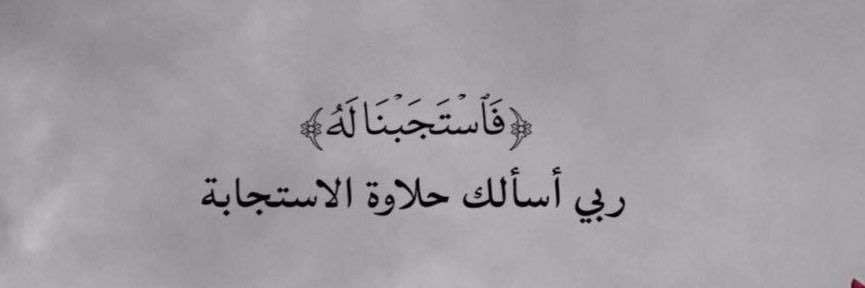 ﴿فَٱسْتَجَبْنَا لَهُ﴾
ربي أسألك حلاوة الاستجابة